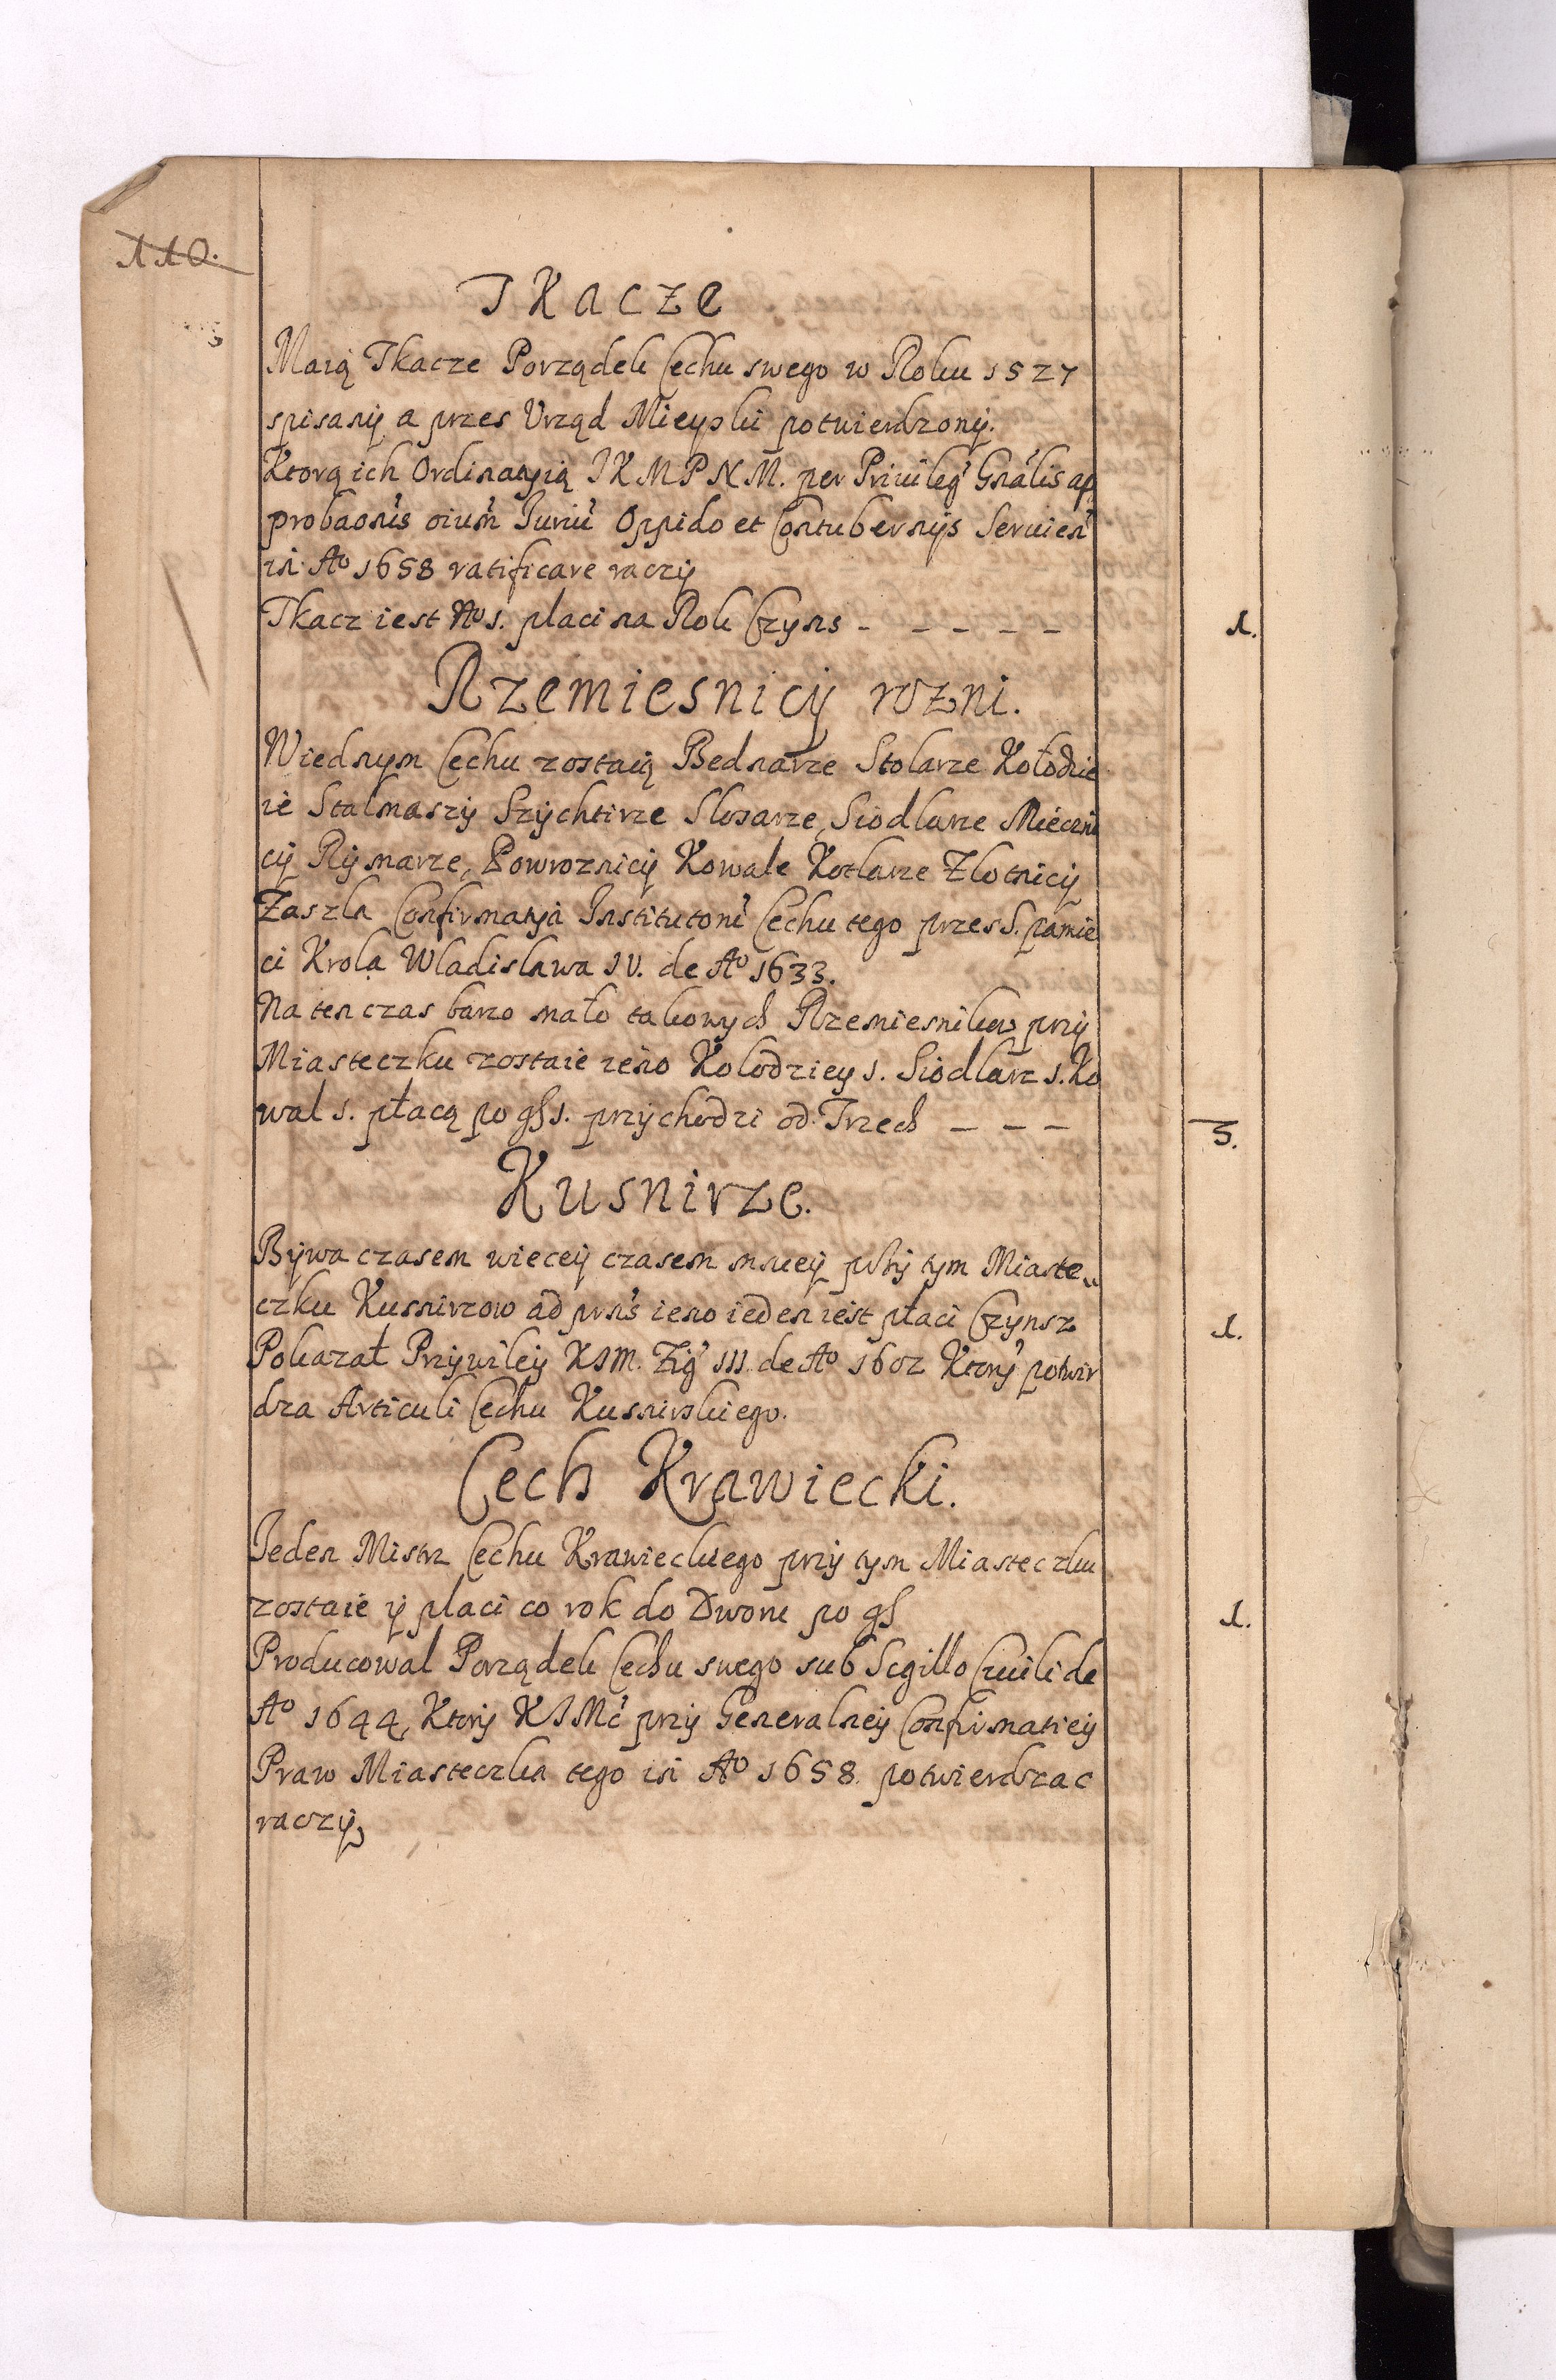 110.
Tkacze
Maią Tkacze Porządek Cechu swego w Roku 1527
spisany a przes Urząd Mieyski potwierdzony.
Ktorą ich Ordinatyią JKMPNM. per Privileg Gnalis ap
probaonis oium Iuriu Oppido et Contubernijs Servien
in Ao 1658 ratificare raczy
Tkacz iest No 1. placi na Rok Czyns - - - - - 1.
Rzemiesnicy rozni.
Wiednym Cechu zostaią Bednarze Stolarze Kołodzie
ie Stalmaszy Szychtirze Slosarze, Siodlarze Mieczni
cy Rymarze, Powroznicy Kowale Kotlarze Zlotnicy
Zaszla Confirmatyia Institutoni Cechu tego przes S. pamie
ci Krola Wladislawa IV. de Ao 1633.
Na ten czas barzo mało takowych Rzemiesnikow przy
Miasteczku zostaie ieno Kolodziey 1. Siodlarz 1. Ko
wal 1. płacą po gſ 1. przychodzi od Trzech - - - 3.
Kusnirze.
Bywa czasem wiecey czasem mniey przy tym Miaste„
czku Kusnirzow ad prns ieno ieden iest płaci Czynsz 1.
Pokazał Przywiley KJM. Zig III. de Ao 1602 Ktory potwir
dza Articuli Cechu Kusnirskiego.
Cech Krawiecki.
Ieden Mistrz Cechu Krawieckiego przy tym Miasteczku
zostaie y placi co rok do Dworu po gſ 1.
Producowal Porządek Cechu swego sub Sigillo Civili de
Ao 1644, Ktory KJMc przy Generalney Confirmatiey
Praw Miasteczka tego in Ao 1658. potwierdzac
raczy,